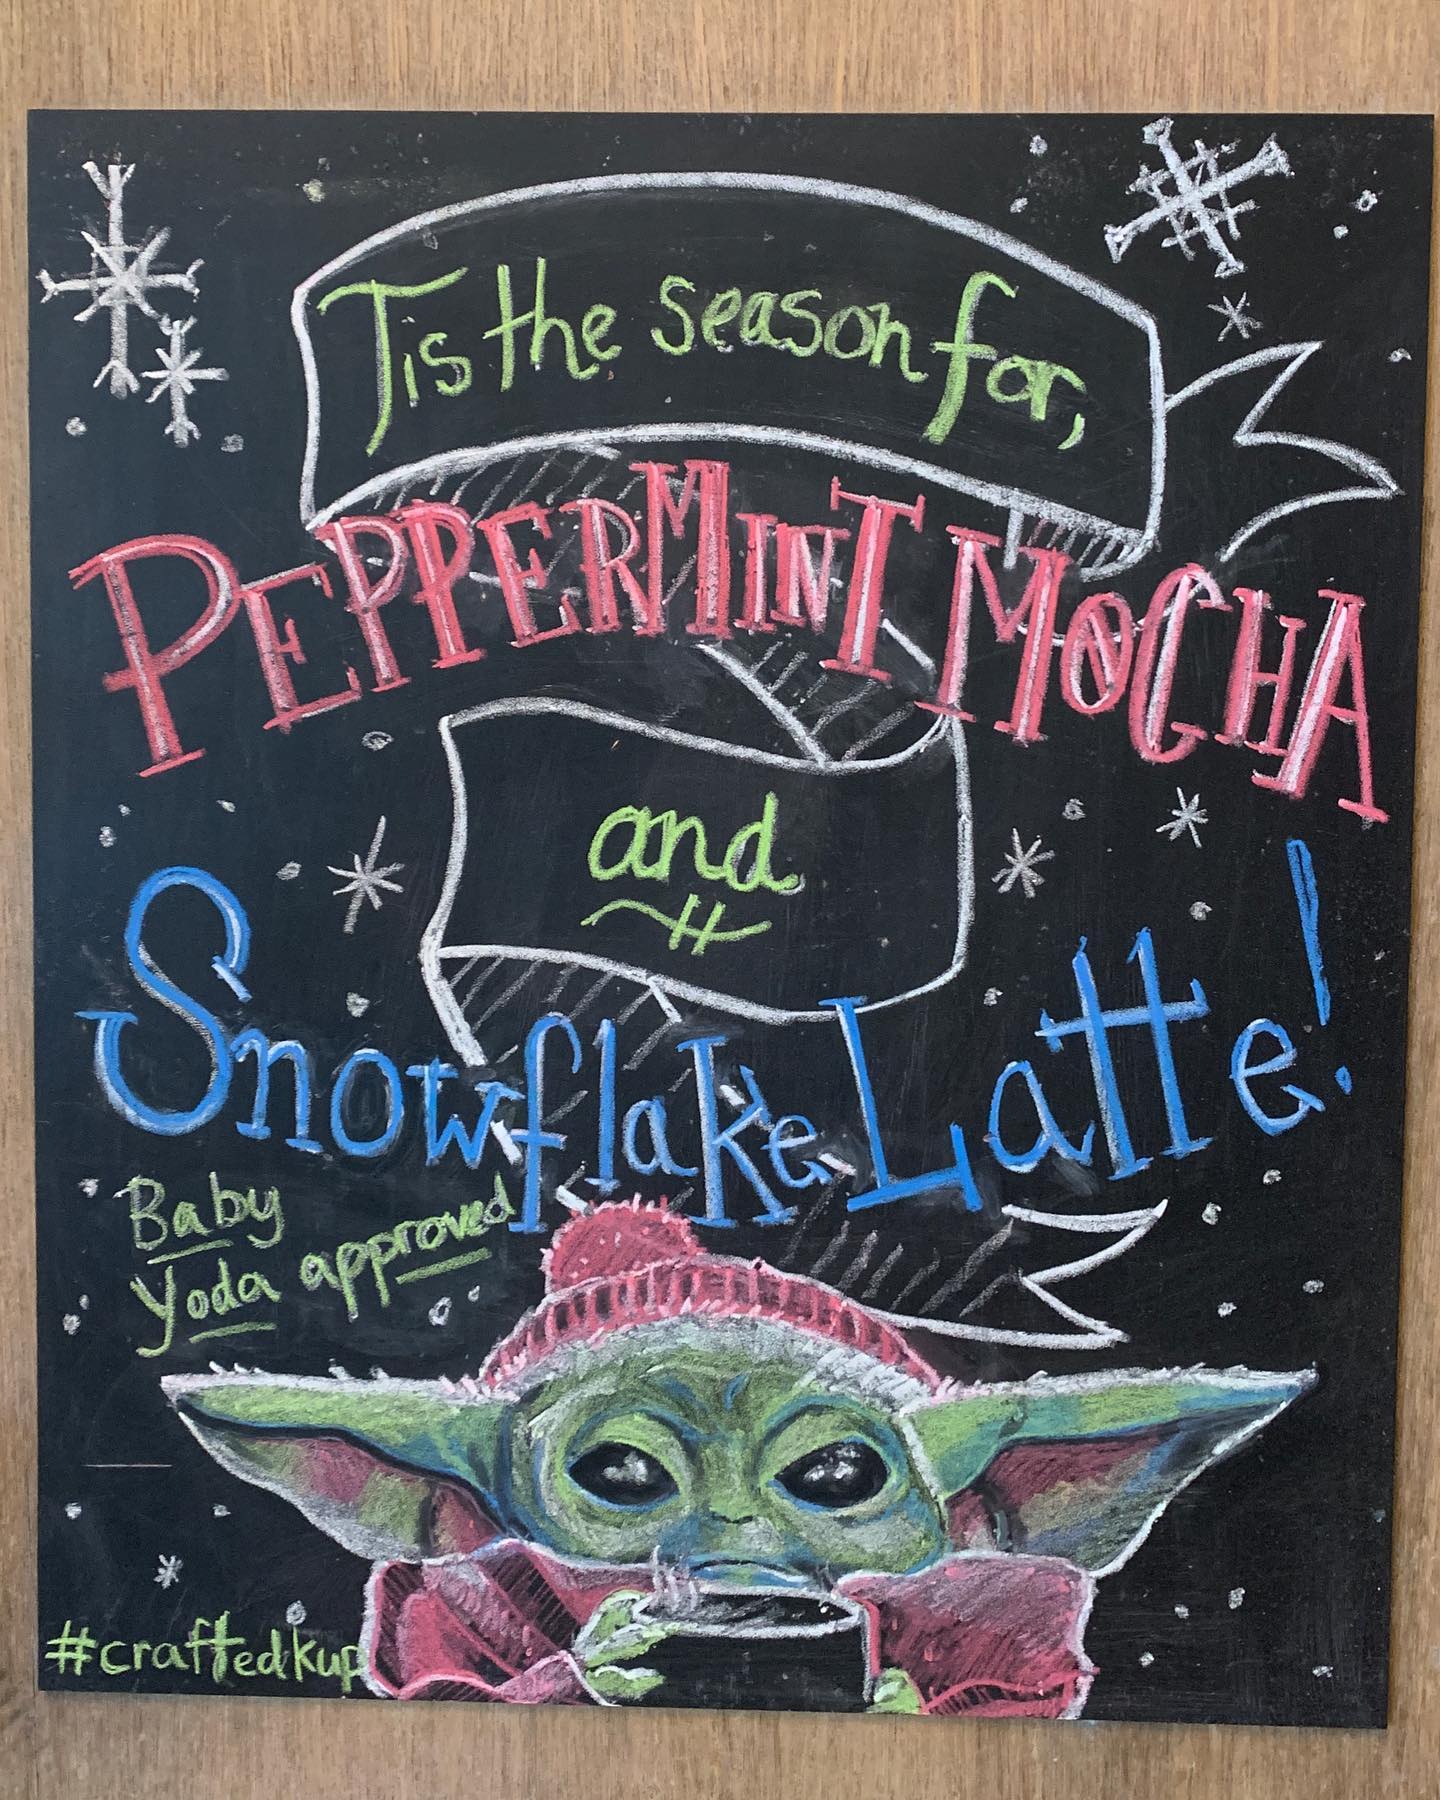 Tis the season for,
PEPPERMINT MOCHA
and
Snowflake Latte!
Baby
Yoda approved
#craftedkup